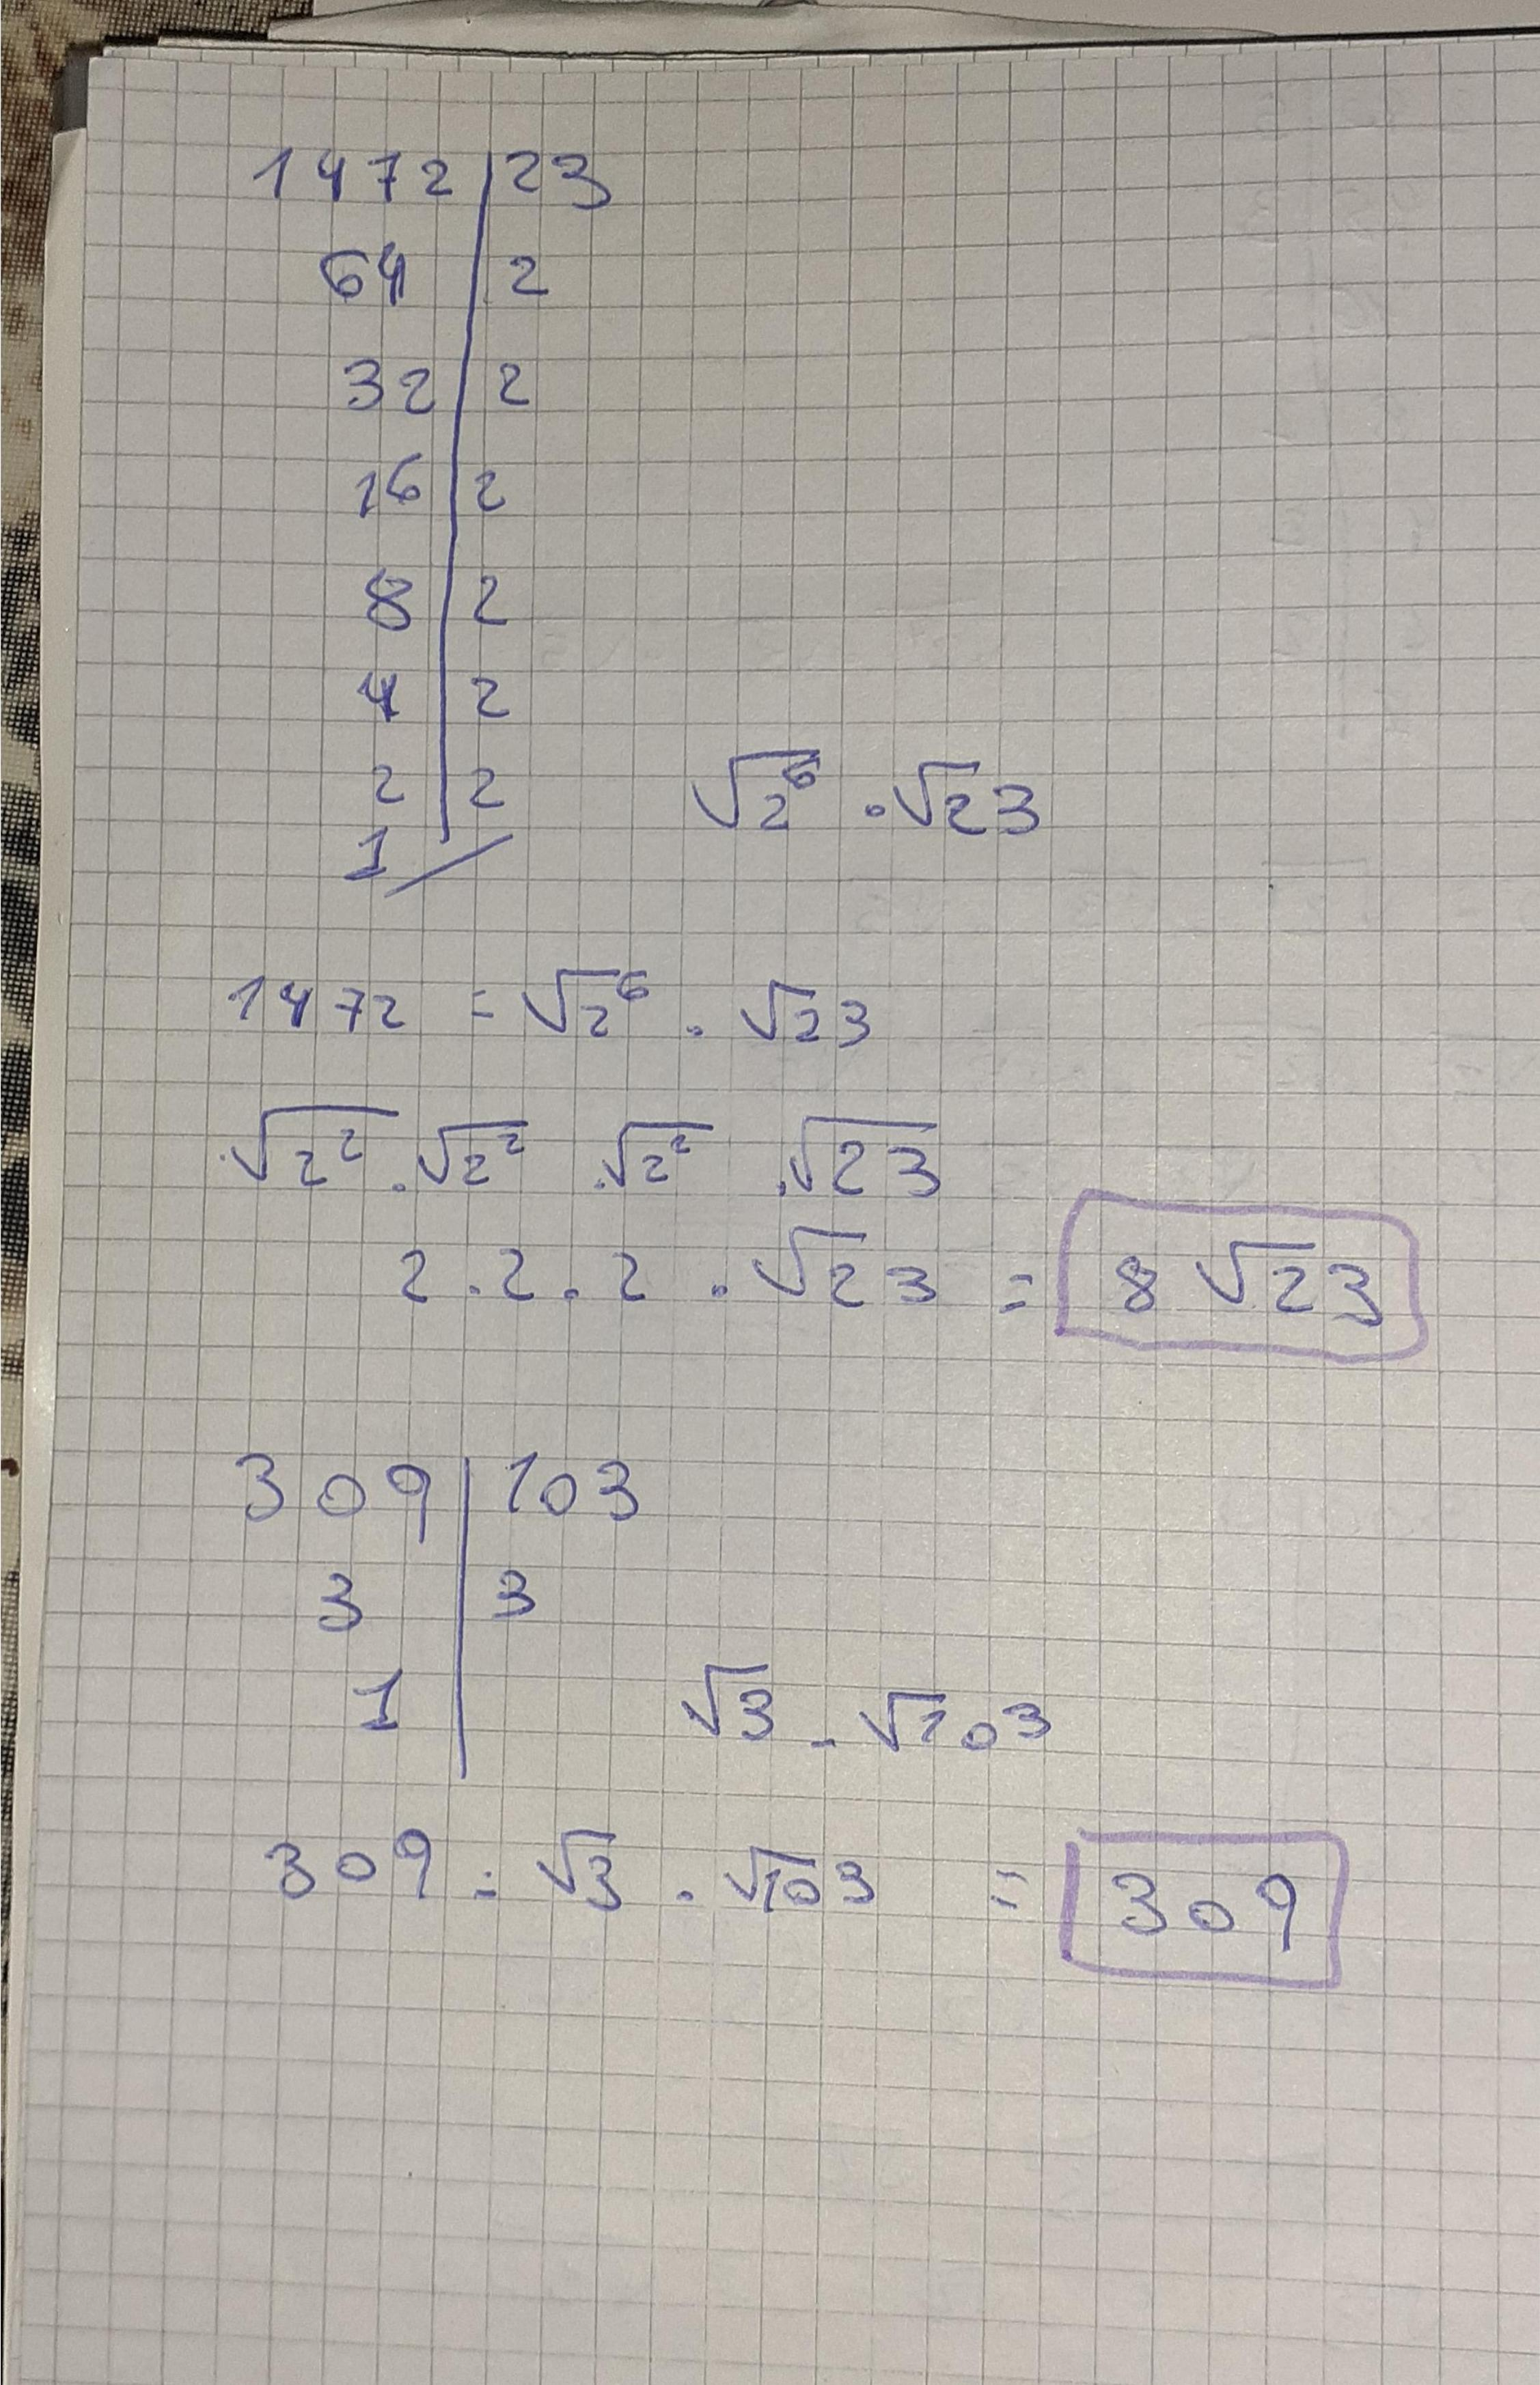 1472 | 23
64 | 2
32 | 2
16 | 2
8 | 2
4 | 2
2 | 2
1
√2⁶ · √23
1472 = √2⁶ · √23
√2² · √2² · √2² · √23
2 · 2 · 2 · √23 = 8√23
309 | 103
3 | 3
1
√3 · √103
309 = √3 · √103 = 309